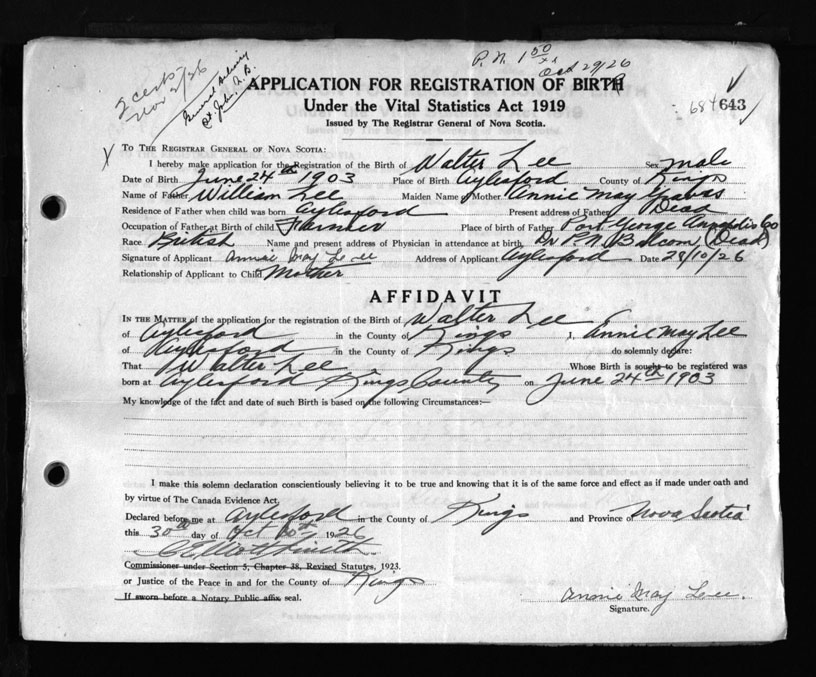 P.N. 1 50
Oct 29/26
2 certs
Nov 2/26
General Delivery
St John, N.B.
APPLICATION FOR REGISTRATION OF BIRTH
Under the Vital Statistics Act 1919
684 643
Issued by The Registrar General of Nova Scotia.
X TO THE REGISTRAR GENERAL OF NOVA SCOTIA:
I hereby make application for the Registration of the Birth of Walter Lee Sex male
Date of Birth June 24th 1903 Place of Birth Aylesford County of Kings
Name of Father William Lee Maiden Name of Mother Annie May
Residence of Father when child was born Aylesford Present address of Father Dead
Occupation of Father at Birth of child Farmer Place of birth of Father Port George Annapolis Co
Race British Name and present address of Physician in attendance at birth Dr P.N. Balcom (Dead)
Signature of Applicant Annie May Lee Address of Applicant Aylesford Date 28/10/26
Relationship of Applicant to Child Mother
AFFIDAVIT
IN THE MATTER of the application for the registration of the Birth of Walter Lee
of Aylesford in the County of Kings I, Annie May Lee
of Aylesford in the County of Kings do solemnly declare:
That Walter Lee Whose Birth is sought to be registered was
born at Aylesford Kings County on June 24th 1903
My knowledge of the fact and date of such Birth is based on the following Circumstances:—
I make this solemn declaration conscientiously believing it to be true and knowing that it is of the same force and effect as if made under oath and
by virtue of The Canada Evidence Act.
Declared before me at Aylesford in the County of Kings and Province of Nova Scotia
this 30th day of Oct 1926
Elliott Smith
Commissioner under Section 5, Chapter 38, Revised Statutes, 1923.
or Justice of the Peace in and for the County of Kings
If sworn before a Notary Public affix seal.
Annie May Lee.
Signature.